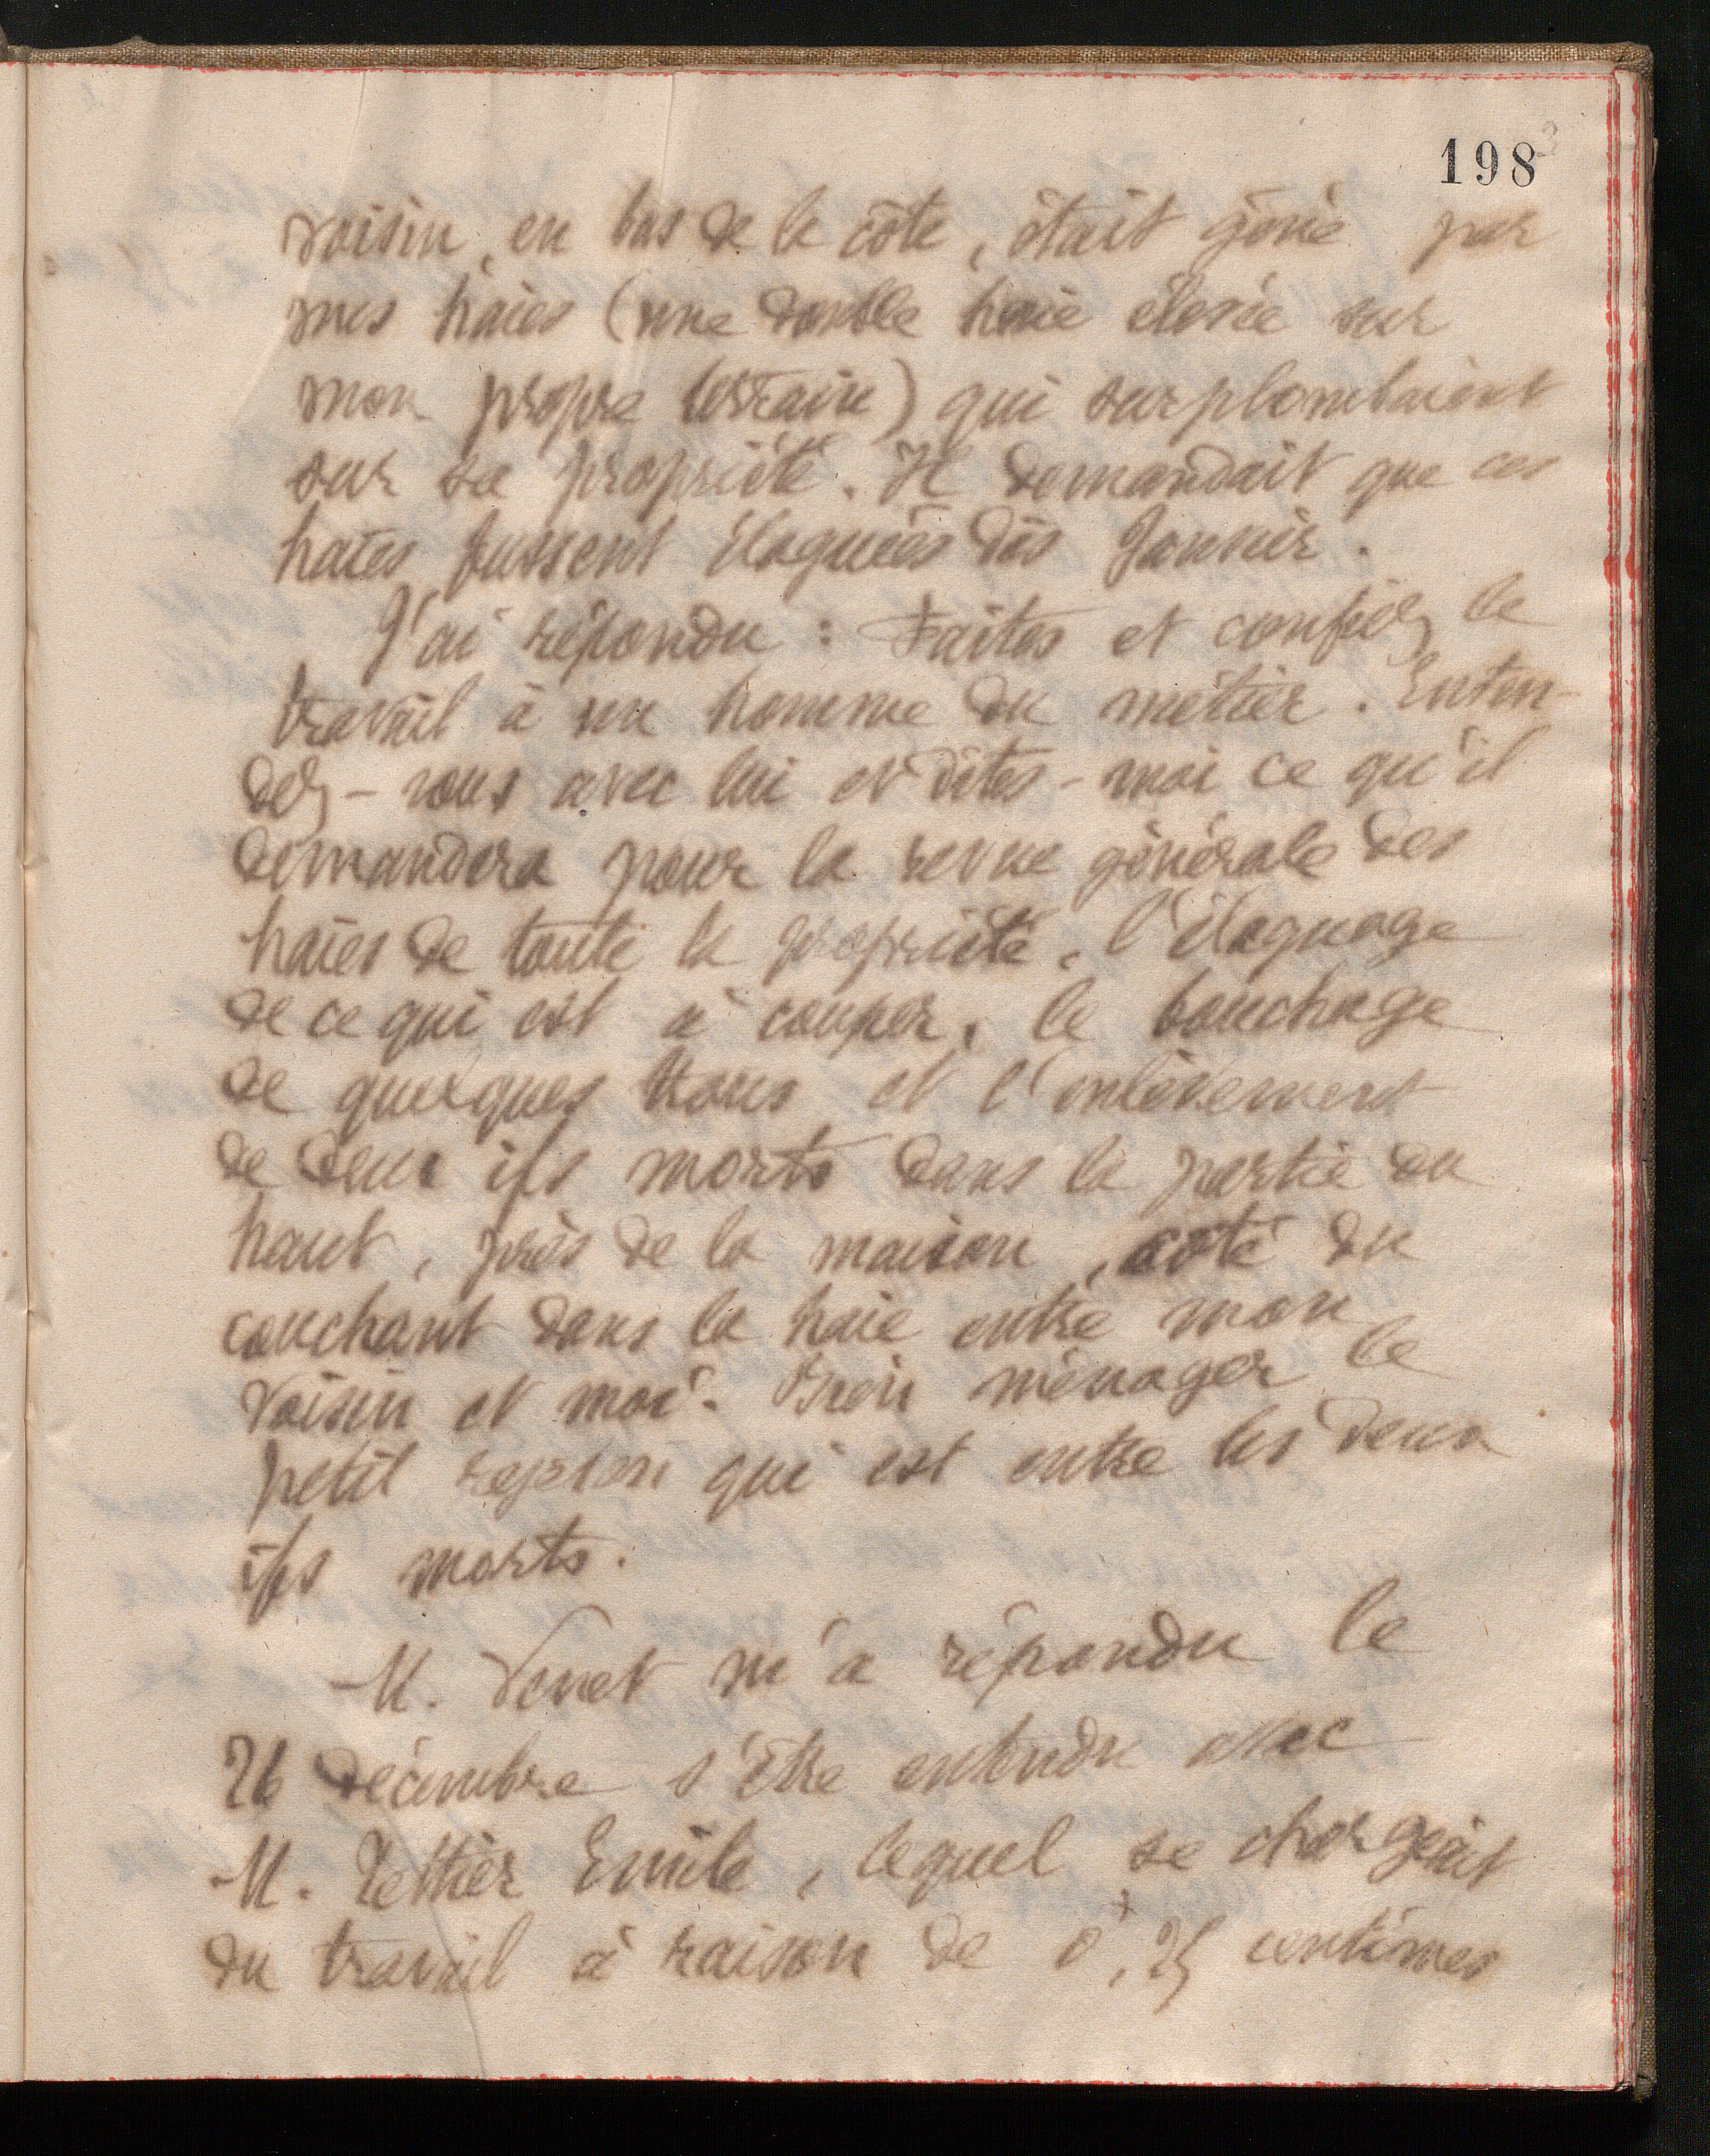 198
voisin, en bas de la côte, était gêné par
mes haies (une double haie élevée sur
mon propre terrain) qui surplombaient
sur sa propriété. Il demandait que ces
haies fussent élaguées dès Janvier.
J'ai répondu : Faites et confiez le
travail à un homme du métier. Enten-
dez-vous avec lui et dites-moi ce qu'il
demandera pour la revue générale des
haies de toute la propriété, l'élaguage
de ce qui est à couper, le bouchage
de quelques trous et l'enlèvement
de deux ifs morts dans la partie du
haut, près de la maison, côté du
couchant dans la haie entre mon
voisin et moi. Bien ménager le
petit qui est entre les deux
ifs morts.
M. Venet m'a répondu le
26 décembre s'être entendu avec
M. Emile, lequel se chargeait
du travail à raison de 0f,25 centimes